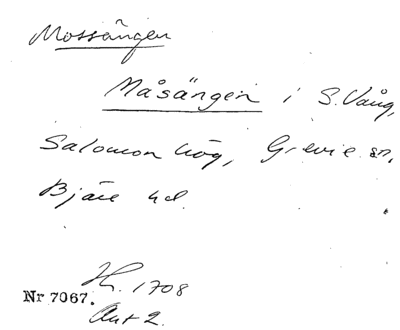 Mossängen
Måsängen i S. Vång,
Salomon hög, Grevie sn,
Bjäre hd.
H. 1708
Nr 7067.
Akt 2.